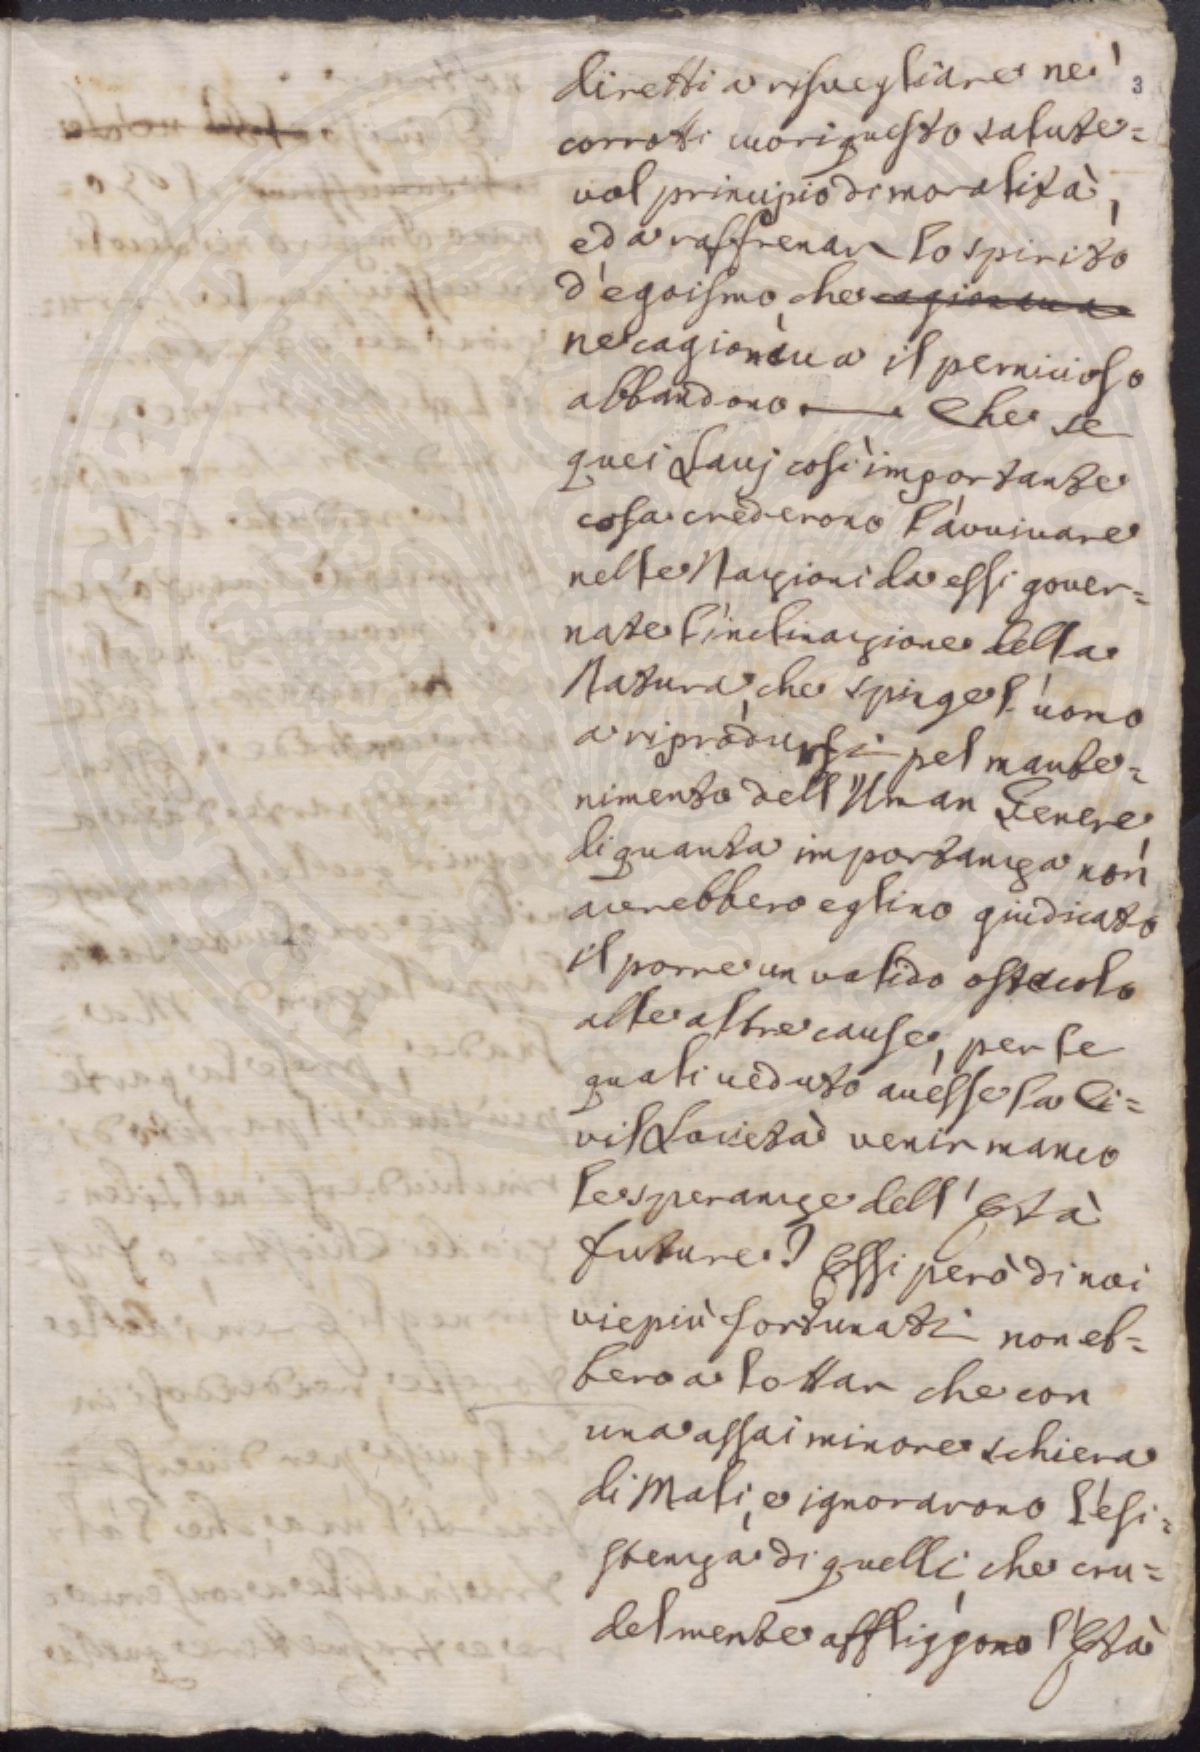 3
diretti a risvegliare ne'
corrotti cuori questo salute=
vol principio di moralità,
ed a raffrenar lo spirito
d'egoismo, che cagionava
ne cagionava il pernicioso
abbandono —— Che se
quei Savj così importante
cosa crederono l'avvivare
nelle Nazioni da essi gover=
nate l'inclinazione della
Natura, che spinge l'uomo
a riprodursi pel mante=
nimento dell'Uman Genere,
di quanta importanza non
averebbero eglino giudicato
il porre un valido ostacolo
alle altre cause, per le
quali veduto avesse la Ci=
vil Società venir manco
le speranze dell'Età
future? Essi però di noi
viepiù fortunati non eb=
bero a lottar che con
una assai minore schiera
di Mali, e ignoravono l'esi=
stenza di quelli, che cru=
delmente affliggono l'Età